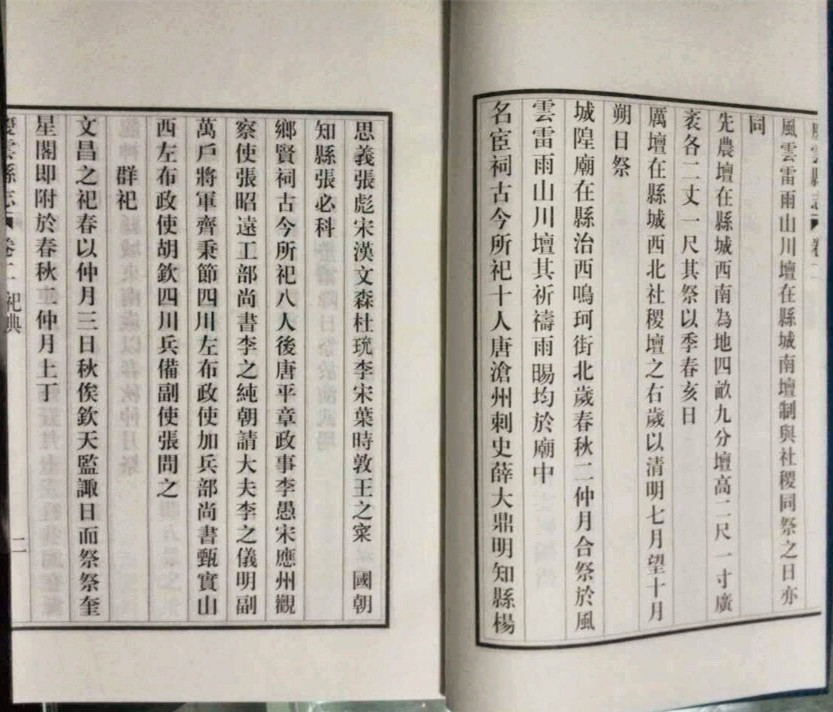 慶雲縣志 卷二
風雲雷雨山川壇在縣城南壇制與社稷同祭之日亦
同
先農壇在縣城西南為地四畝九分壇高二尺一寸廣
袤各二丈一尺其祭以季春亥日
厲壇在縣城西北社稷壇之右歲以清明七月望十月
朔日祭
城隍廟在縣治西鳴珂街北歲春秋二仲月合祭於風
雲雷雨山川壇其祈禱雨暘均於廟中
名宦祠古今所祀十人唐滄州刺史薛大鼎明知縣楊
思義張彪宋漢文森杜珫李宋葉時敦王之寀 國朝
知縣張必科
鄉賢祠古今所祀八人後唐平章政事李愚宋應州觀
察使張昭遠工部尚書李之純朝請大夫李之儀明副
萬戶將軍齊秉節四川左布政使加兵部尚書甄實山
西左布政使胡欽四川兵備副使張問之
群祀
文昌之祀春以仲月三日秋俟欽天監諏日而祭祭奎
星閣即附於春秋二仲月上丁
慶雲縣志 卷二 祀典 二